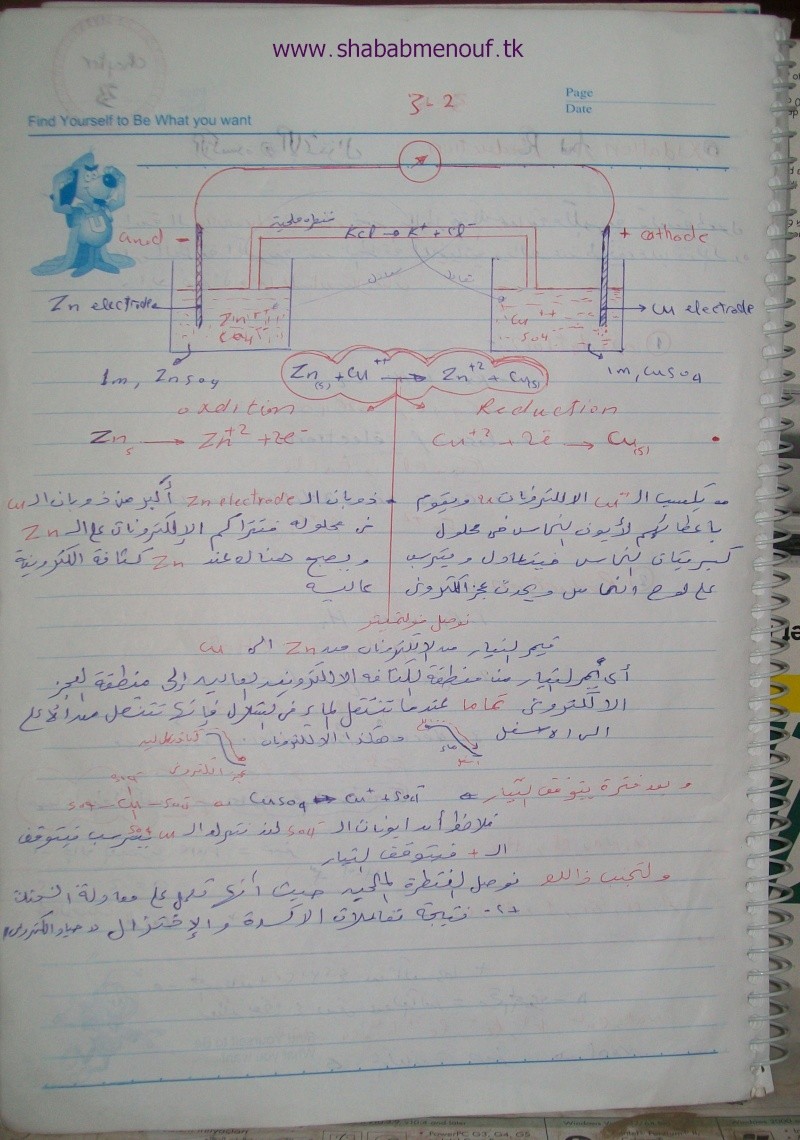 www.shababmenouf.tk
3-2
Page
Date
Find Yourself to Be What you want
anod -
قنطرة ملحية
KCl → K⁺ + Cl⁻
+ cathode
تعادل
تعادل
Zn electrode
Zn⁺⁺
SO₄⁻⁻
Cu⁺⁺
SO₄⁻⁻
Cu electrode
1m, ZnSO₄
Zn(s) + Cu⁺⁺ → Zn⁺² + Cu(s)
1m, CuSO₄
oxdition
Reduction
Zn s → Zn⁺² + 2e⁻
Cu⁺² + 2e → Cu(s)
ذوبان الـ Zn electrode أكبر من ذوبان الـ Cu
فى محلوله فتتراكم الإلكترونات على الـ Zn
ويصبح هناك عند Zn كثافة الكترونية
عالية
يكتسب الـ Cu الالكترونات ويقوم
باعطائهم لأيون النحاس فى محلول
كبريتات النحاس فيتعادل ويترسب
على لوح النحاس ويحدث عجز الكترونى
نوصل فولتميتر
فيمر التيار من الالكترونات من Zn الى Cu
أى يمر التيار من منطقة الكثافه الالكترونيه العاليه إلى منطقة العجز
الالكترونى تماما عندما تنتقل الماء فى الشلال فإنها تنتقل من الأعلى
الى الاسفل
ماء
وهكذا الالكترونات
كثافة عاليه
عجز الكترونى
وبعد فترة يتوقف التيار
CuSO₄ → Cu⁺ + SO₄⁻
SO₄ - Cu - SO₄
فلاحظ أن ايونات الـ SO₄ لن تترك الـ Cu يترسب فيتوقف
الـ + فيتوقف التيار
ولتجنب ذالك نوصل القنطرة الملحيه حيث أنها تعمل على معادلة الشحنة
نتيجة تفاعلات الاكسدة والإختزال